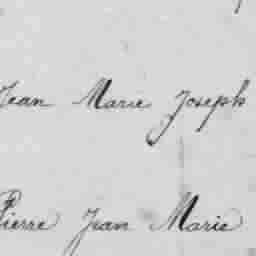 Jean Marie Joseph
Pierre Jean Marie